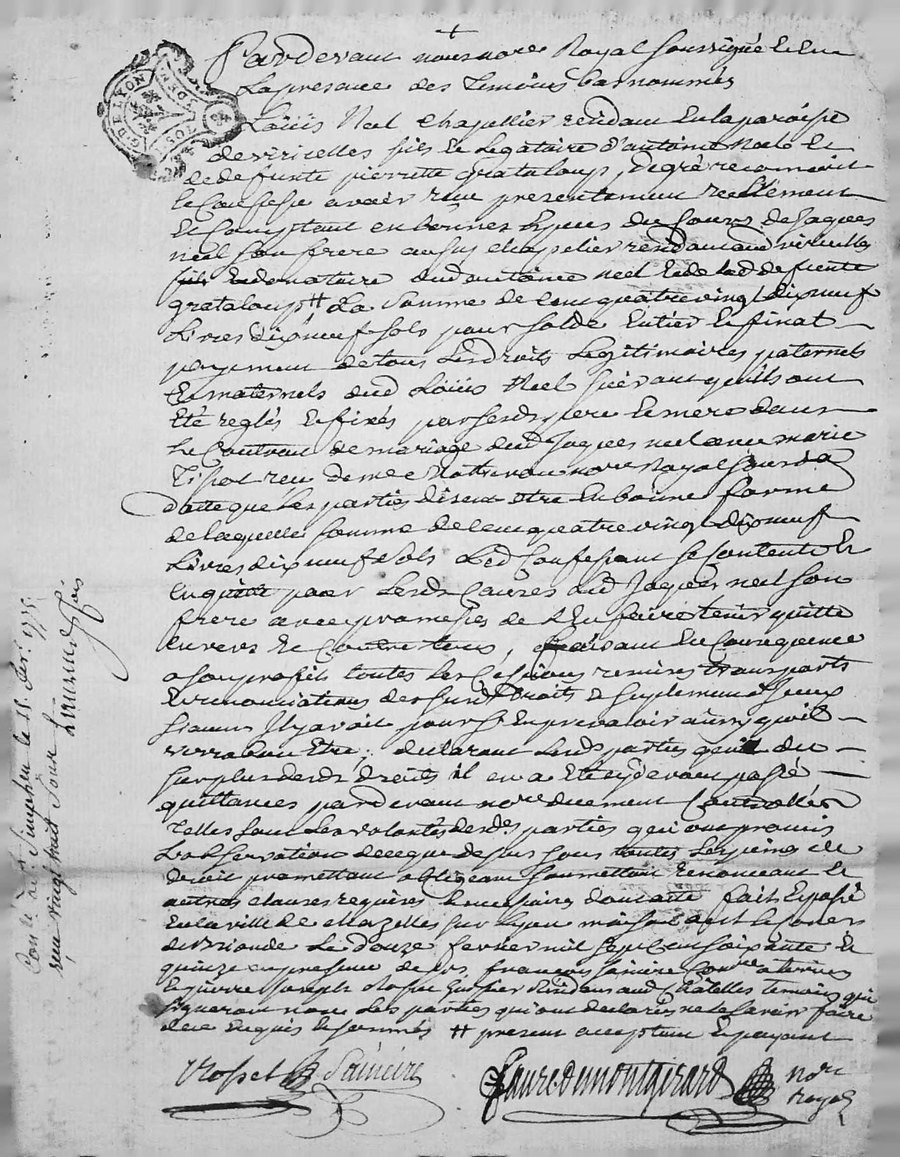 Pardevant nous no.re Royal soussigné et en
La presence des Temoins bas nommés
Loüis Neel chapellier rendant en la paroisse
de viricelles fils et Legataire d'antoine Neel et
de defunte pierrette grataloup, de gré reconnoit
et Confesse avoir reçu presentement reellement
et Comptant en bonnes especes du Cours de Jaques
neel son frere aussy chapelier rendant aud. viricelles
fils et donataire dud antoine neel et de lad defunte
grataloup # La somme de Cent quatre vingt dix neuf
Livres dix neuf sols pour solde entier et final
payement de tous Lesd droits Legitimaires paternels
et maternels dud Loüis Neel suivant quils ont
été reglés et fixés par sesd pere et mere dans
le Contrat de mariage dud Jaques neel avec marie
reçu de me no.re Royal
datte que Les parties disent etre en bonne forme
de laquelle somme de Cent quatre vingt dix neuf
Livres dix neuf sols Led Confessant se Contente et
en quitte pour Lesd Causes Led Jaques neel son
frere avec promesses de L'en faire tenir quitte
envers et Contre tous, faisant en Consequence
a son profit toutes les Cessions remises transports
et renonciations desusd droits & suplement d'iceux
sy aucun Il y avoit pour s'en prevaloir ainsy quil
verra bon etre; declarant Lesd parties que du
surplus desd droits il en a été cy devant passé
quittances pardevant no.re duement Controllées
Telles sont Les volontés desd parties qui ont promis
L'observation de ce que dessus sous toutes Les peines de
droit promettant obligeant soumettant renonceant et
autres clauses requises et necessaires dont acte fait et passé
en la ville de chazelles sur Lyon maison
Le douze fevrier mil sept Cent soixante et
quinze en presence de srs françois sainire
et sieur Joseph rosset residans aud Chazelles temoins qui
signeront non Les parties qui ont declaré ne le savoir faire
de ce enquis et sommés # present acceptant et payant
Rosset Sainire Faure Dumontgirard no.re
Royal
Con.lé à St Simphin le 25. fev. 1775.
reçu vingt huit sous